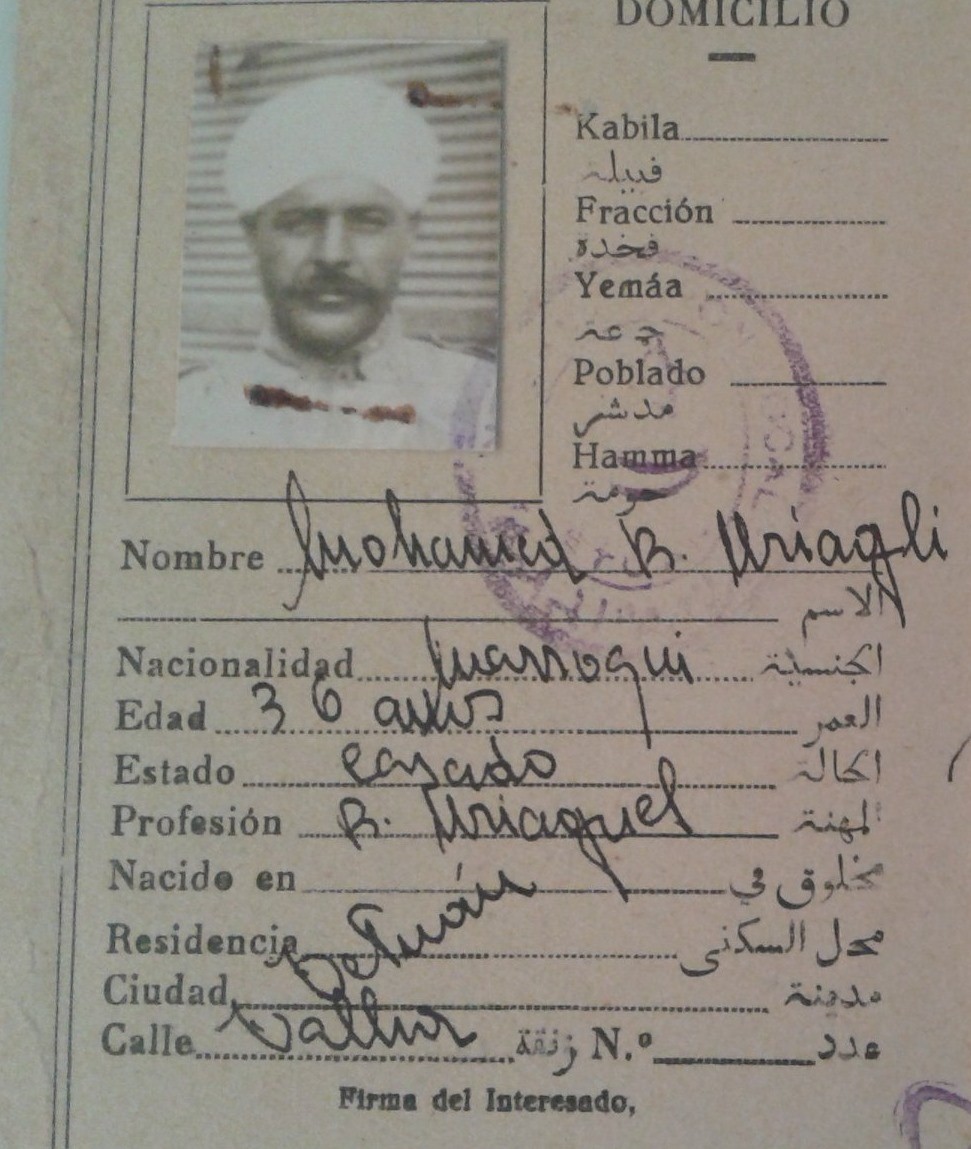 DOMICILIO
Kabila
قبيلة
Fracción
فخدة
Yemáa
جمعة
Poblado
مدشر
Hamma
حومة
Nombre Mohamed B. Uriagli
الاسم
Nacionalidad Marroqui الجنسية
Edad 36 años العمر
Estado casado الحالة
Profesión B. Uriaguel المهنة
Nacido en مخلوق في
Residencia Tetuán محل السكنى
Ciudad مدينة
Calle زنقة N.º عدد
Firma del Interesado,